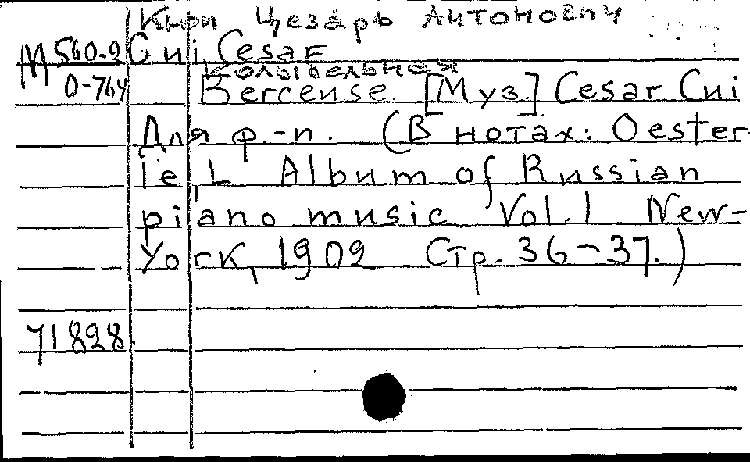 Кюи Цезарь Антонович
М 560-9 Cui Cesar
Колыбельная
0-764 Bercense. [Муз.] Cesar Cui
Для ф.-п. (В нотах: Oester
le, L Album of Russian
piano music Vol. 1 New-
York, 1909 Стр. 36-37.)
71828